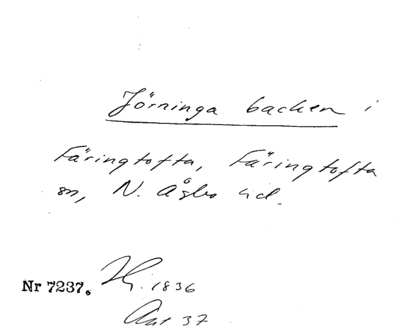 Jörninga backen i
Färingtofta, Färingtofta
sn, N. Åsbo hd.
Nr 7237. Hj. 1836
Ant 37